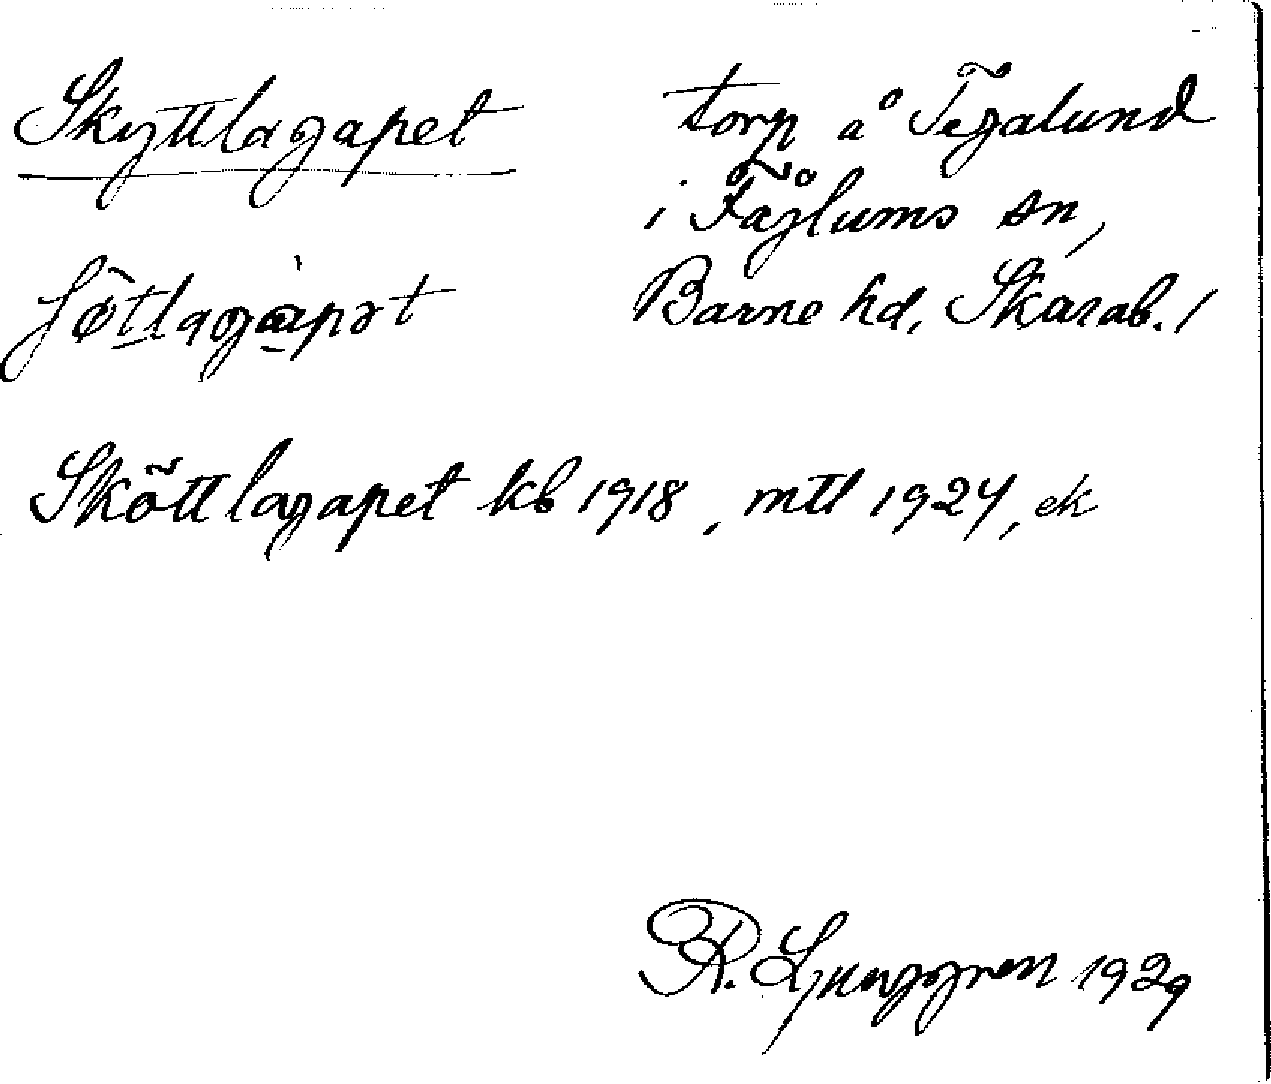 Skyttlagapet
torp å Tegalund
i Fåglums sn,
Barne hd, Skarab. l
Sköttlagapet kb 1918, mtl 1924, ek
R. Ljunggren 1929